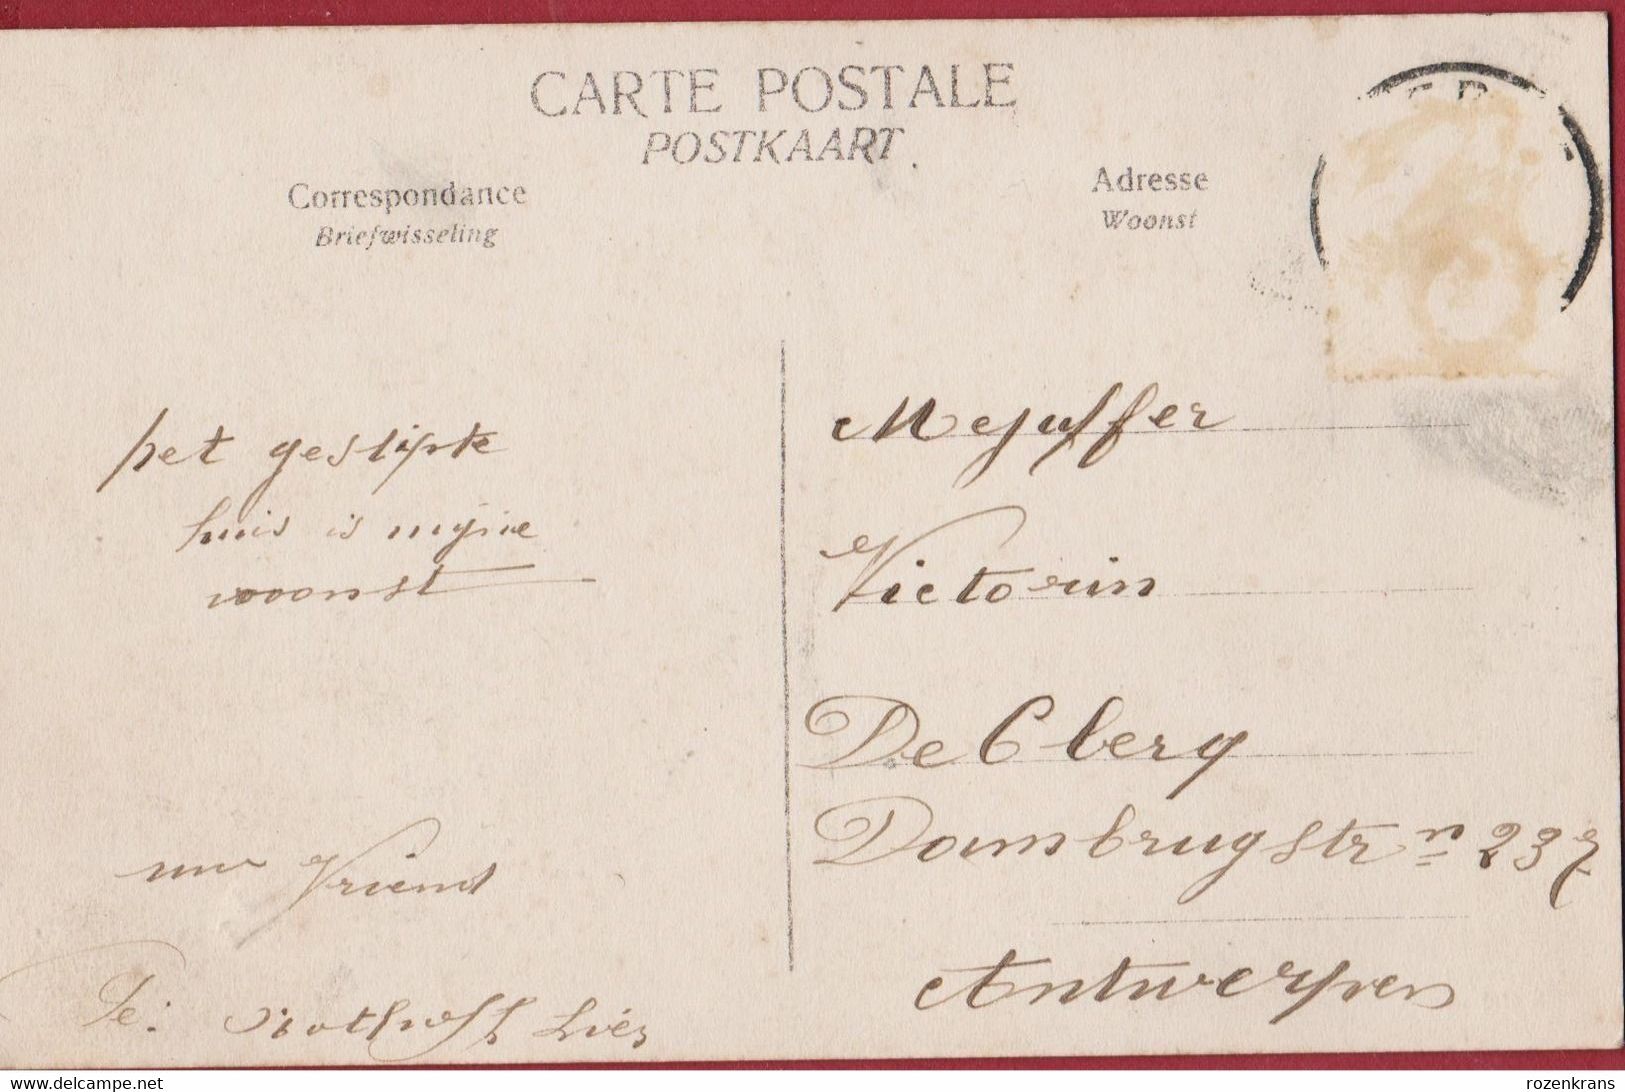 CARTE POSTALE
POSTKAART
Correspondance
Briefwisseling
Adresse
Woonst
het gestipte
huis is mijne
woonst
uw Vriend
Mejuffer
Victorin
De Clerq
Dambrugstr n 237
Antwerpen
delcampe.net
rozenkrans